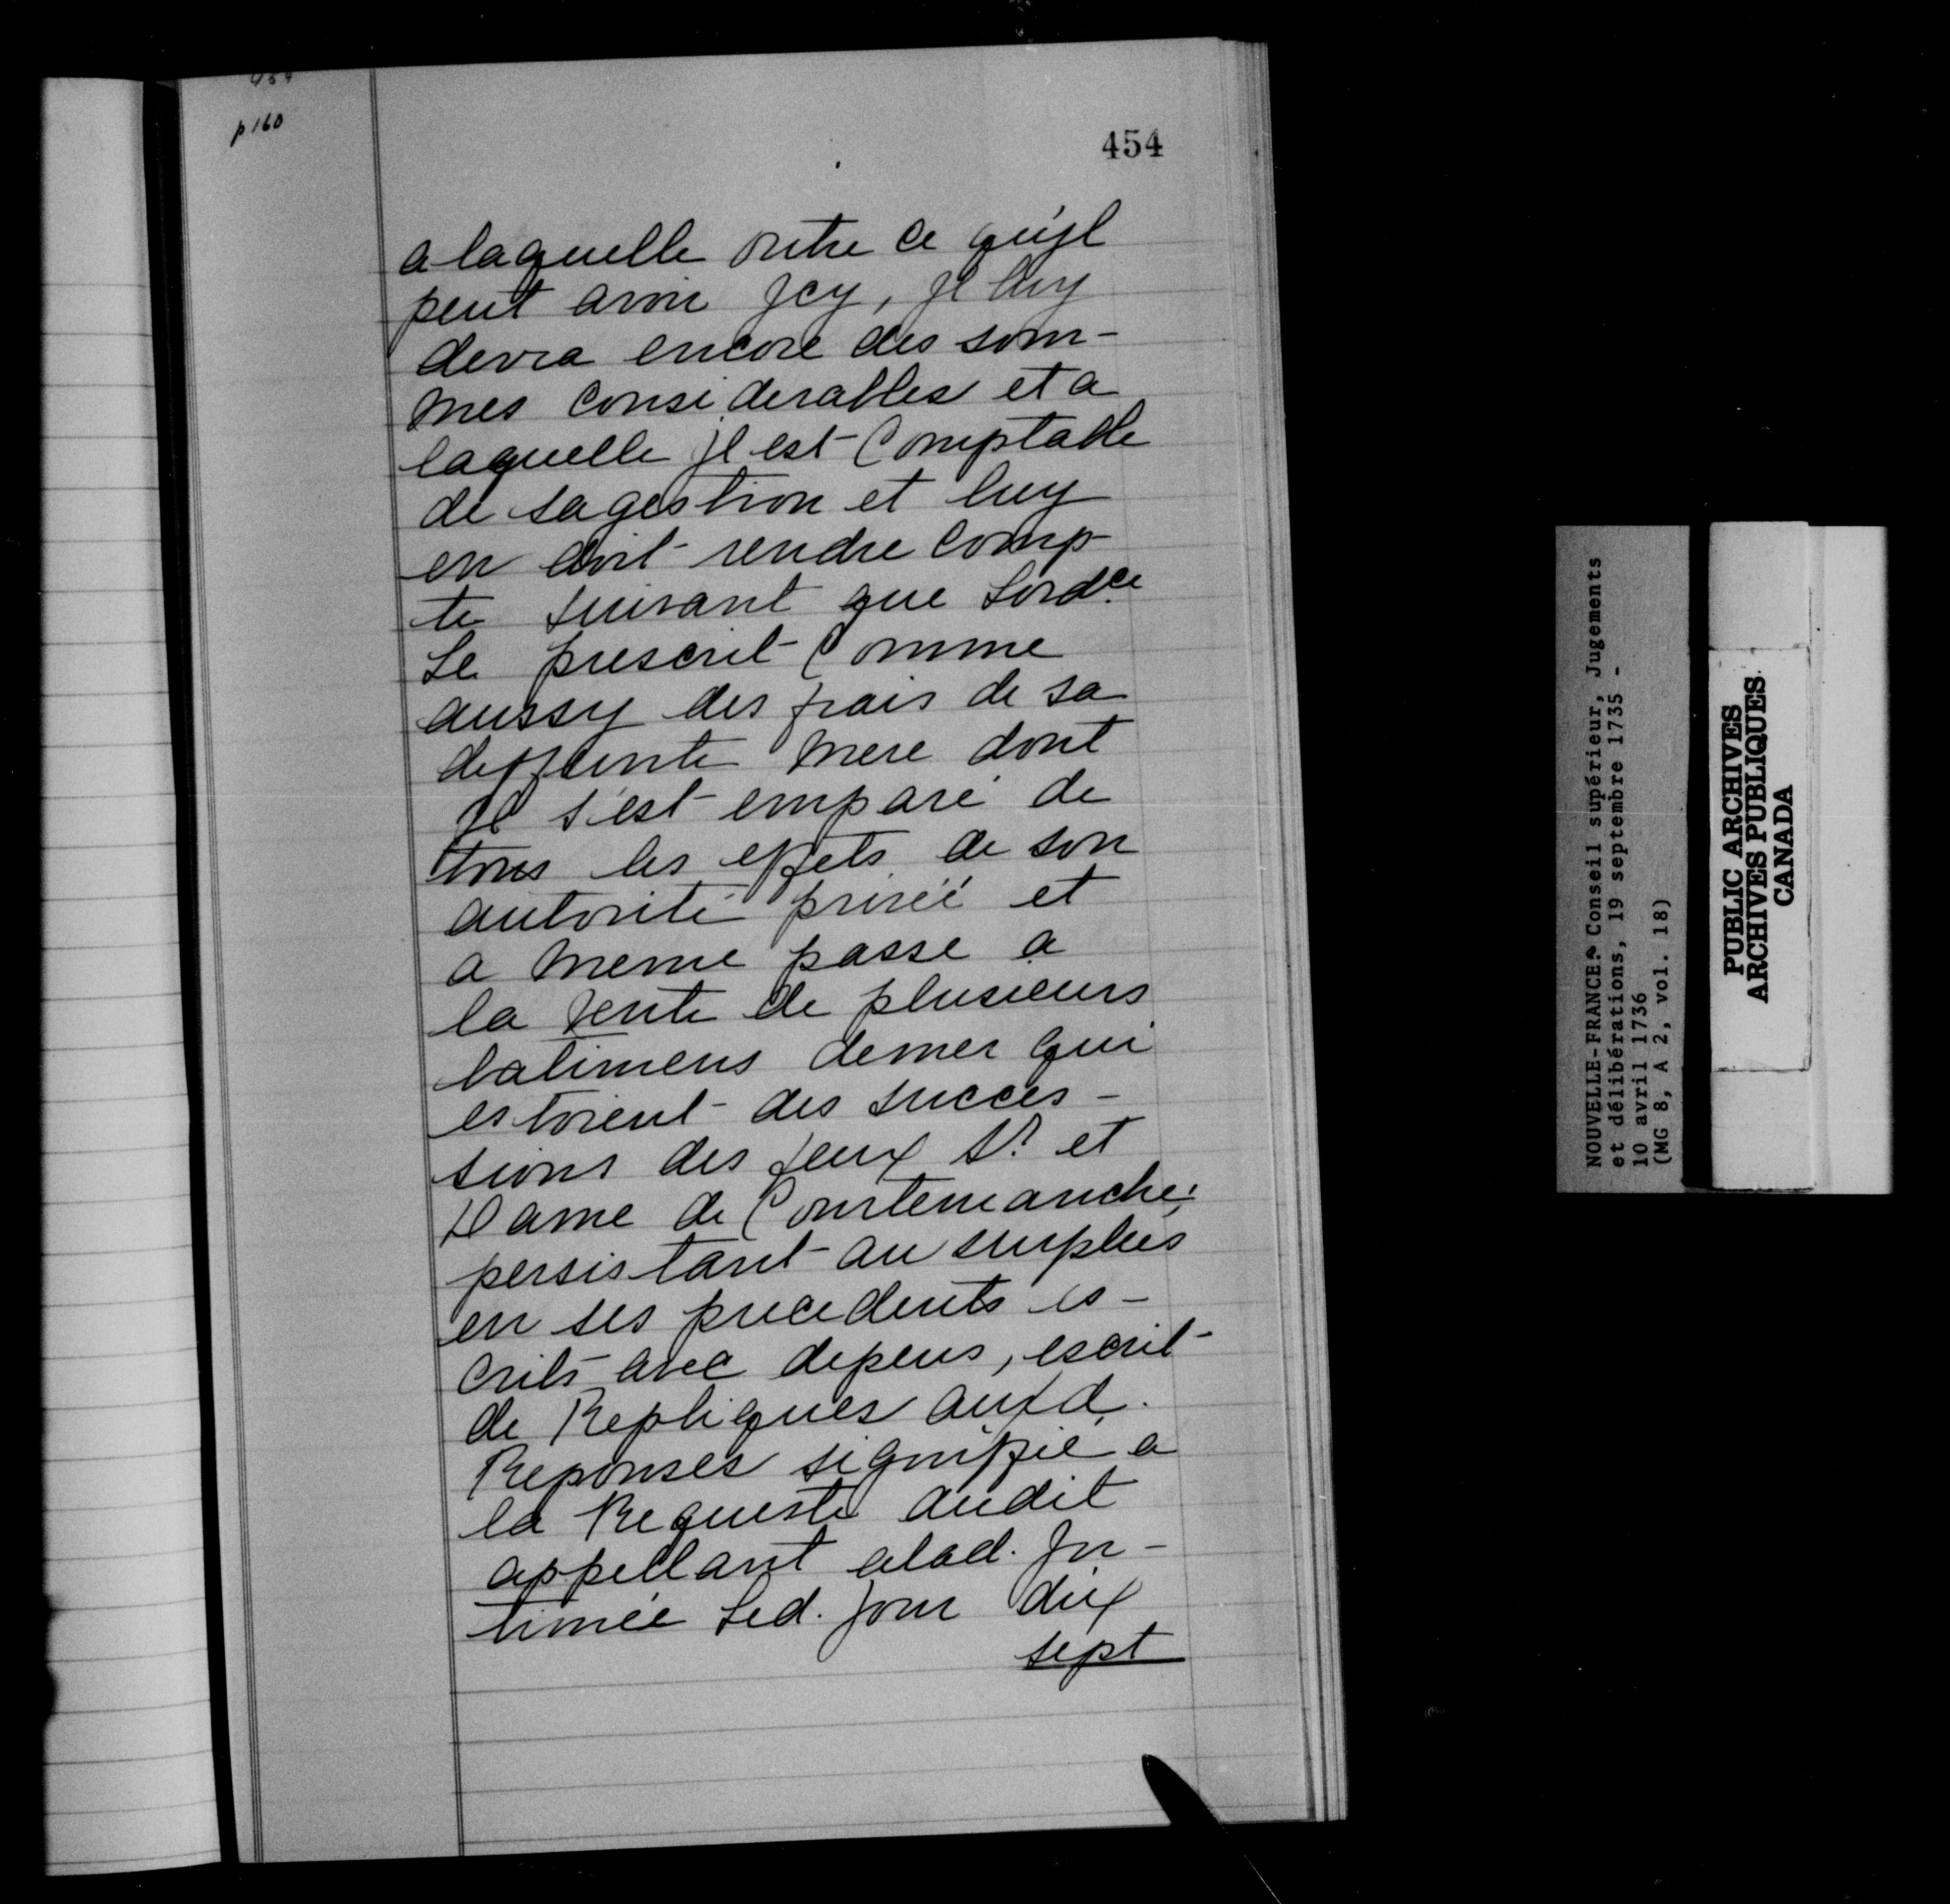 p 160
454
a laquelle outre ce qu'jl
peut avoir Jcy, Jl luy
devra encore des som-
mes considerables et a
laquelle jl est Comptable
de sa gestion et luy
en doit rendre comp-
te suivant que Lord.ce
Le prescrit Comme
aussy des frais de sa
deffunte mere dont
Jl s'est emparé de
tous les effets de son
autorité privéé et
a meme passe a
la vente de plusieurs
batimens demer qui
estoient des succes-
sions des feux Sr. et
Dame de Courtemanche;
persistant au surplus
en ses precedents es-
crits avec depens, escrit
de Repliques auxd.
Reponses signiffié a
la Requeste dudit
appellant alad. Jn-
timée Led. jour dix
sept
NOUVELLE-FRANCE. Conseil supérieur, Jugements
et délibérations, 19 septembre 1735 -
10 avril 1736
(MG 8, A 2, vol. 18)
PUBLIC ARCHIVES
ARCHIVES PUBLIQUES
CANADA